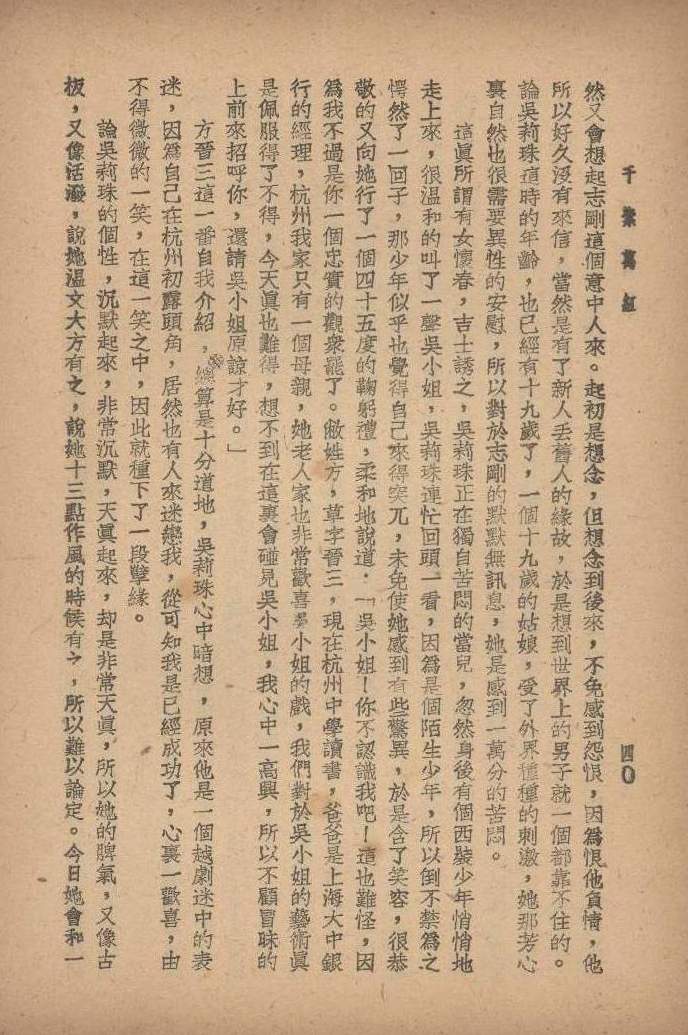 千紫萬紅
四〇
然又會想起志剛這個意中人來。起初是想念，但想念到後來，不免感到怨恨，因爲恨他負情，他
所以好久沒有來信，當然是有了新人丟舊人的緣故，於是想到世界上的男子就一個都靠不住的。
論吳莉珠這時的年齡，也已經有十九歲了，一個十九歲的姑娘，受了外界種種的刺激，她那芳心
裏自然也很需要異性的安慰，所以對於志剛的默默無訊息，她是感到一萬分的苦悶。
這眞所謂有女懷春，吉士誘之，吳莉珠正在獨自苦悶的當兒，忽然身後有個西裝少年悄悄地
走上來，很溫和的叫了一聲吳小姐，吳莉珠連忙回頭一看，因爲是個陌生少年，所以倒不禁爲之
愕然了一回子，那少年似乎也覺得自己來得突兀，未免使她感到有些驚異，於是含了笑容，很恭
敬的又向她行了一個四十五度的鞠躬禮，柔和地說道：「吳小姐！你不認識我吧！這也難怪，因
爲我不過是你一個忠實的觀衆罷了。敝姓方，草字晉三，現在杭州中學讀書，爸爸是上海大中銀
行的經理，杭州我家只有一個母親，她老人家也非常歡喜小姐的戲，我們對於吳小姐的藝術眞
是佩服得了不得，今天眞也難得，想不到在這裏會碰見吳小姐，我心中一高興，所以不顧冒昧的
上前來招呼你，還請吳小姐原諒才好。」
方晉三這一番自我介紹，總算是十分道地，吳莉珠心中暗想，原來他是一個越劇迷中的表
迷，因爲自己在杭州初露頭角，居然也有人來迷戀我，從可知我是已經成功了，心裏一歡喜，由
不得微微的一笑，在這一笑之中，因此就種下了一段孽緣。
論吳莉珠的個性，沉默起來，非常沉默，天眞起來，却是非常天眞，所以她的脾氣，又像古
板，又像活潑，說她溫文大方有之，說她十三點作風的時候有之，所以難以論定。今日她會和一